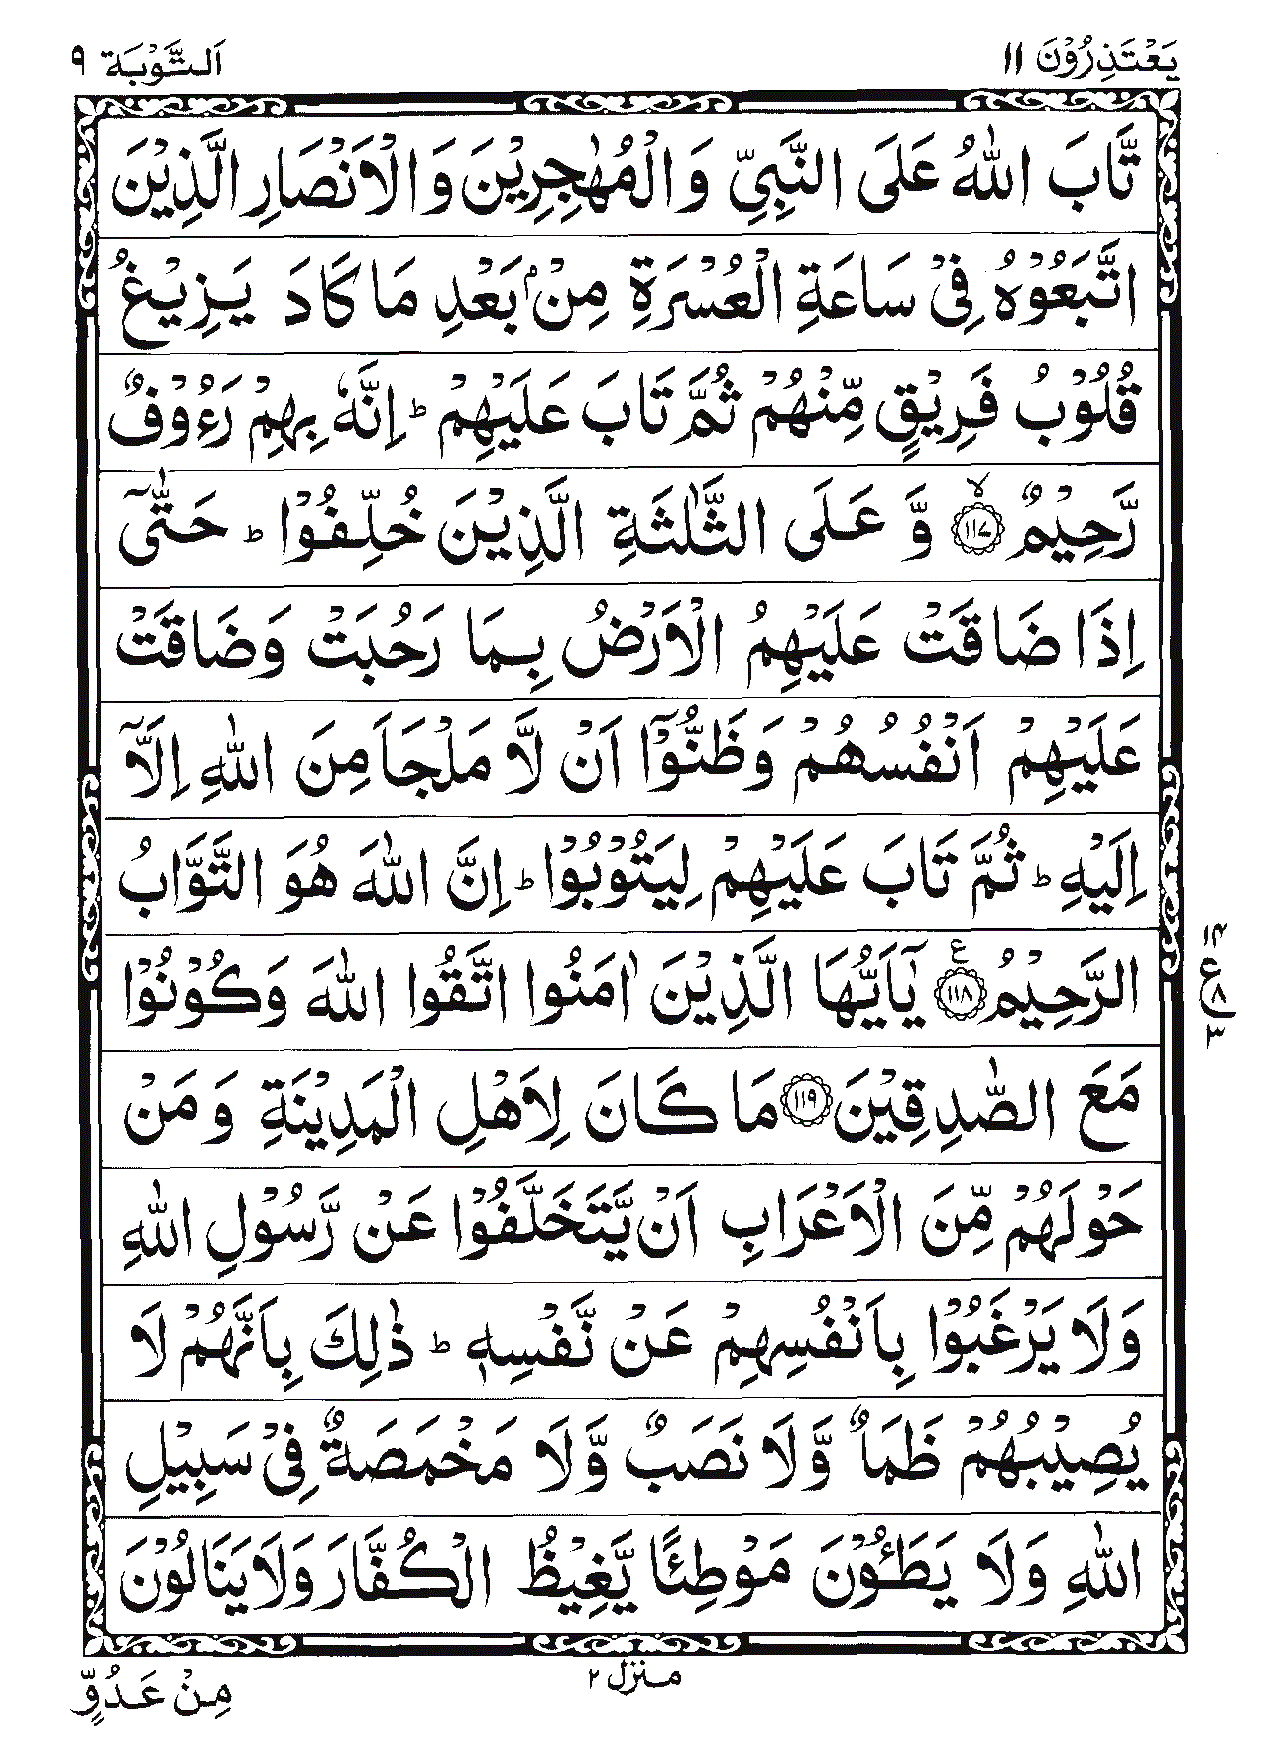 يَعْتَذِرُوْنَ ١١
اَلتَّوْبَة ٩
تَّابَ اللّٰهُ عَلَى النَّبِيِّ وَالْمُهٰجِرِيْنَ وَالْاَنْصَارِ الَّذِيْنَ
اتَّبَعُوْهُ فِيْ سَاعَةِ الْعُسْرَةِ مِنْۢ بَعْدِ مَا كَادَ يَزِيْغُ
قُلُوْبُ فَرِيْقٍ مِّنْهُمْ ثُمَّ تَابَ عَلَيْهِمْ ؕ اِنَّهٗ بِهِمْ رَءُوْفٌ
رَّحِيْمٌ ۙ﴿١١٧﴾ وَّعَلَى الثَّلٰثَةِ الَّذِيْنَ خُلِّفُوْا ؕ حَتّٰۤى
اِذَا ضَاقَتْ عَلَيْهِمُ الْاَرْضُ بِمَا رَحُبَتْ وَضَاقَتْ
عَلَيْهِمْ اَنْفُسُهُمْ وَظَنُّوْۤا اَنْ لَّا مَلْجَاَ مِنَ اللّٰهِ اِلَّاۤ
اِلَيْهِ ؕ ثُمَّ تَابَ عَلَيْهِمْ لِيَتُوْبُوْا ؕ اِنَّ اللّٰهَ هُوَ التَّوَّابُ
الرَّحِيْمُ ﴿١١٨﴾ع يٰۤاَيُّهَا الَّذِيْنَ اٰمَنُوا اتَّقُوا اللّٰهَ وَكُوْنُوْا
١٤
ع
٨
٣
مَعَ الصّٰدِقِيْنَ ﴿١١٩﴾ مَا كَانَ لِاَهْلِ الْمَدِيْنَةِ وَمَنْ
حَوْلَهُمْ مِّنَ الْاَعْرَابِ اَنْ يَّتَخَلَّفُوْا عَنْ رَّسُوْلِ اللّٰهِ
وَلَا يَرْغَبُوْا بِاَنْفُسِهِمْ عَنْ نَّفْسِهٖ ؕ ذٰلِكَ بِاَنَّهُمْ لَا
يُصِيْبُهُمْ ظَمَاٌ وَّلَا نَصَبٌ وَّلَا مَخْمَصَةٌ فِيْ سَبِيْلِ
اللّٰهِ وَلَا يَطَـُٔوْنَ مَوْطِئًا يَّغِيْظُ الْكُفَّارَ وَلَا يَنَالُوْنَ
منزل ٢
مِنْ عَدُوٍّ